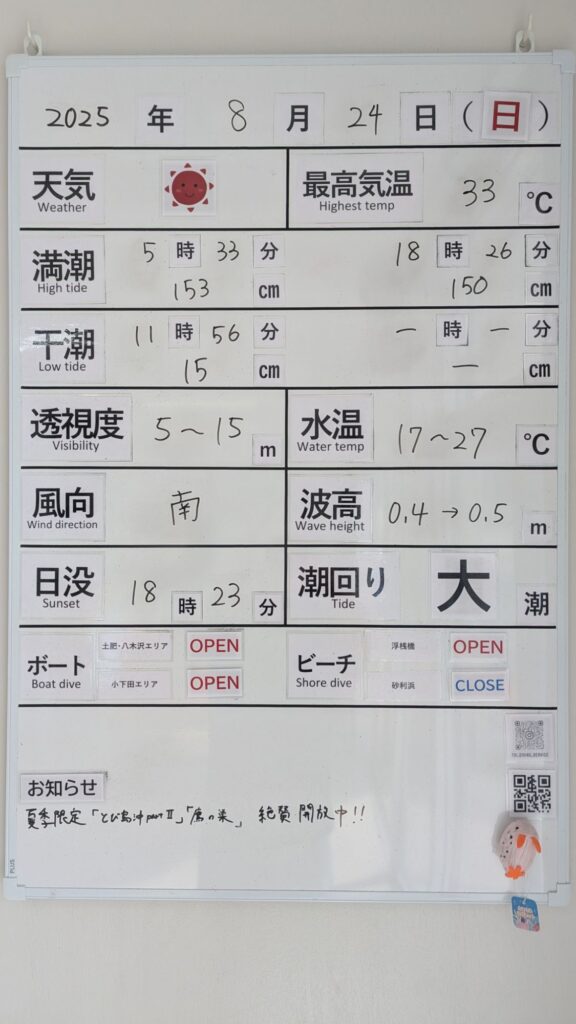 2025 年 8 月 24 日 (日)
天気
Weather
最高気温 33 ℃
Highest temp
満潮 5 時 33 分 18 時 26 分
High tide 153 cm 150 cm
干潮 11 時 56 分 ー 時 ー 分
Low tide 15 cm ー cm
透視度 5〜15 m
Visibility
水温 17〜27 ℃
Water temp
風向 南
Wind direction
波高 0.4→0.5 m
Wave height
日没 18 時 23 分
Sunset
潮回り 大 潮
Tide
ボート 土肥・八木沢エリア OPEN
Boat dive 小下田エリア OPEN
ビーチ 浮桟橋 OPEN
Shore dive 砂利浜 CLOSE
お知らせ
夏季限定「とび島沖partⅡ」「の巣」 絶賛開放中!!
PLUS